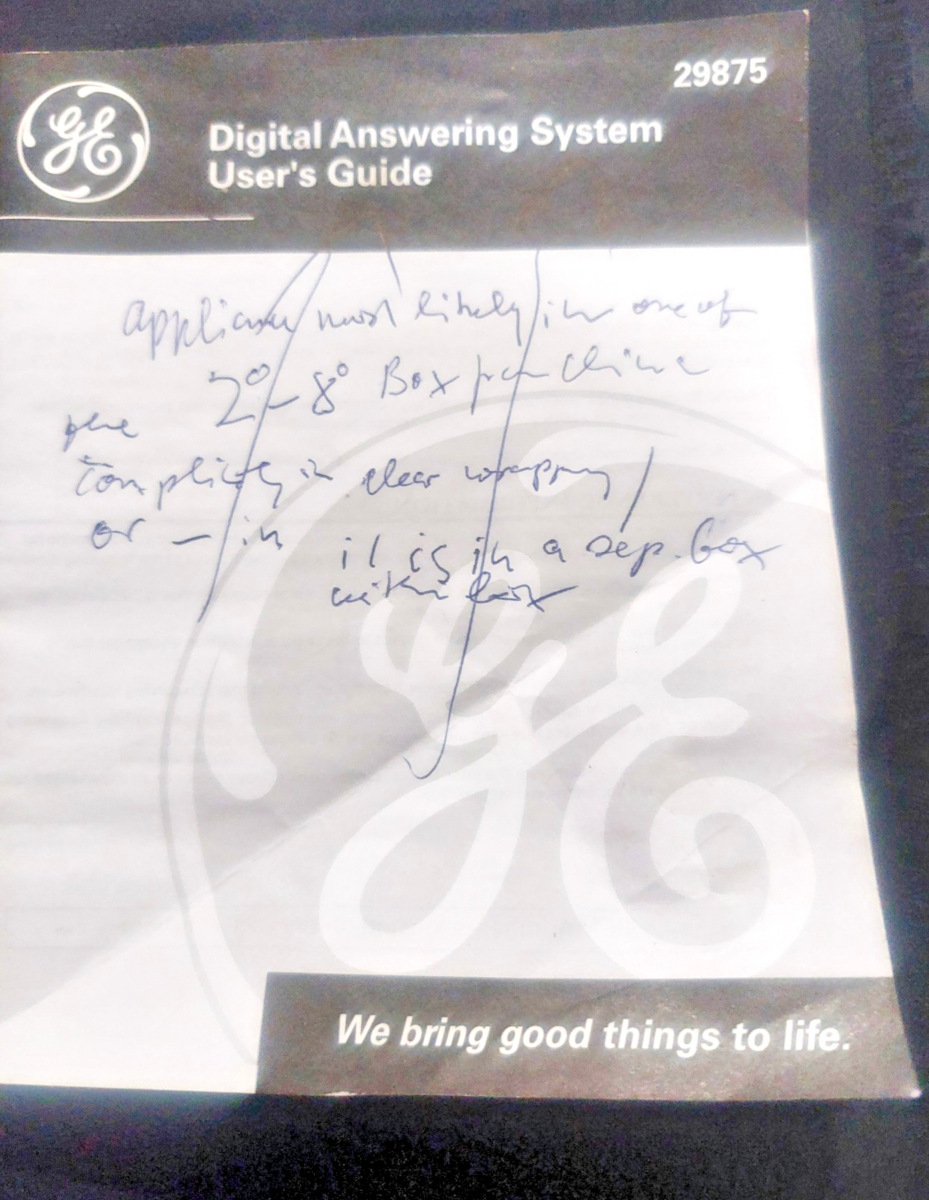 GE
29875
Digital Answering System
User's Guide
most likely in one of
2° - 8° Box
in clear
or - in it is in a sep. box
within box
GE
We bring good things to life.